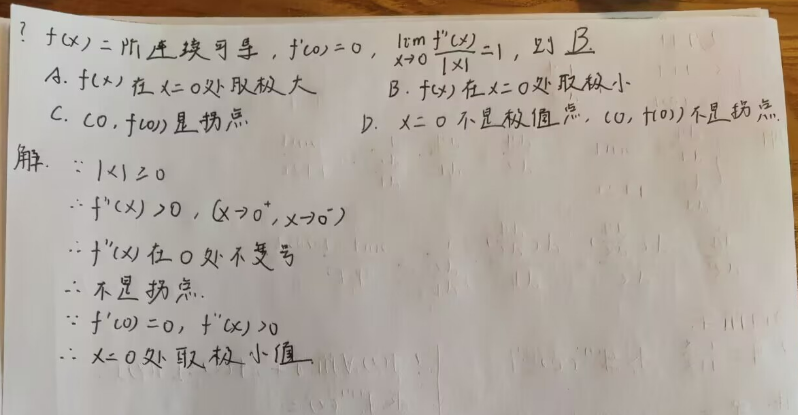 ? f(x)二阶连续可导, f'(0)=0, lim x→0 f''(x)/|x| =1, 则 B.
A. f(x)在x=0处取极大 B. f(x)在x=0处取极小
C. (0, f(0))是拐点 D. x=0不是极值点, (0, f(0))不是拐点.
解. ∵ |x|≥0
∴ f''(x)>0, (x→0⁺, x→0⁻)
∴ f''(x)在0处不变号
∴ 不是拐点.
∵ f'(0)=0, f''(x)>0
∴ x=0处取极小值